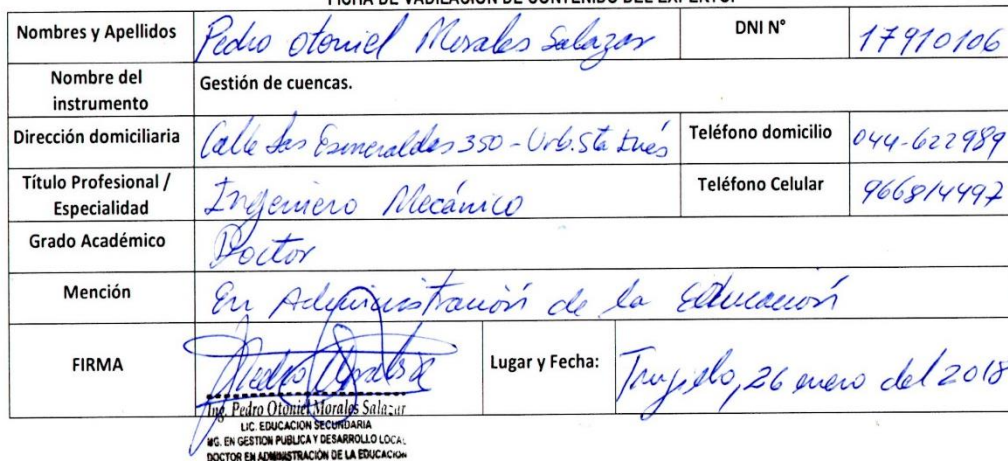 FICHA DE VADILACIÓN DE CONTENIDO DEL EXPERTO.
Nombres y Apellidos Pedro Otoniel Morales Salazar DNI N° 17910106
Nombre del instrumento Gestión de cuencas.
Dirección domiciliaria Calle Las Esmeraldas 350 - Urb. Sta Inés Teléfono domicilio 044-622989
Título Profesional / Especialidad Ingeniero Mecánico Teléfono Celular 966814497
Grado Académico Doctor
Mención En Administración de la Educación
FIRMA Lugar y Fecha: Trujillo, 26 enero del 2018
Ing. Pedro Otoniel Morales Salazar
LIC. EDUCACION SECUNDARIA
MG. EN GESTION PUBLICA Y DESARROLLO LOCAL
DOCTOR EN ADMINISTRACIÓN DE LA EDUCACIÓN